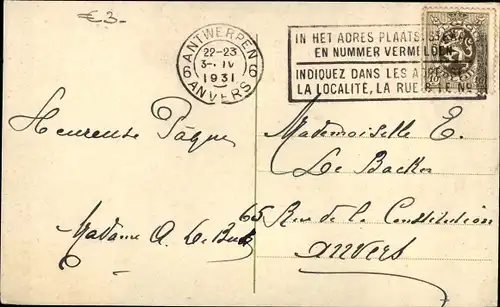 €3.-
ANTWERPEN
6 6
22-23
3-IV
1931
ANVERS
IN HET ADRES PLAATS, STRAAT
EN NUMMER VERMELDEN
INDIQUEZ DANS LES ADRESSES
LA LOCALITÉ, LA RUE & LE No
Heureuse Pâque
Madame A. De Backer
Mademoiselle E.
De Backer
65 Rue de la Constitution
Anvers